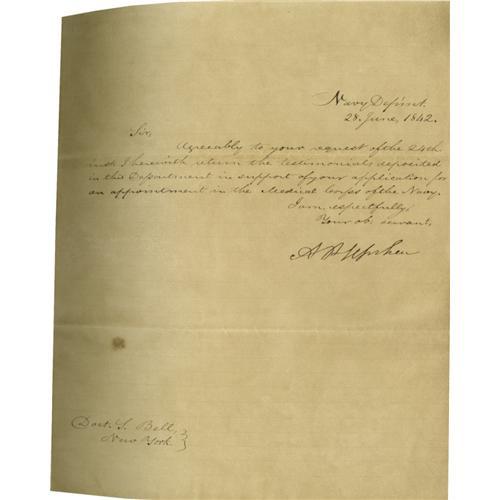 Navy Depmt.
28. June, 1842.
Sir,
Agreeably to your request of the 24th
inst. I herewith return the testimonials deposited
in this Department in support of your application for
an appointment in the Medical Corps of the Navy.
I am, respectfully,
Your ob. servant,
A. P. Upshur
Doct. S. Bell,
New York